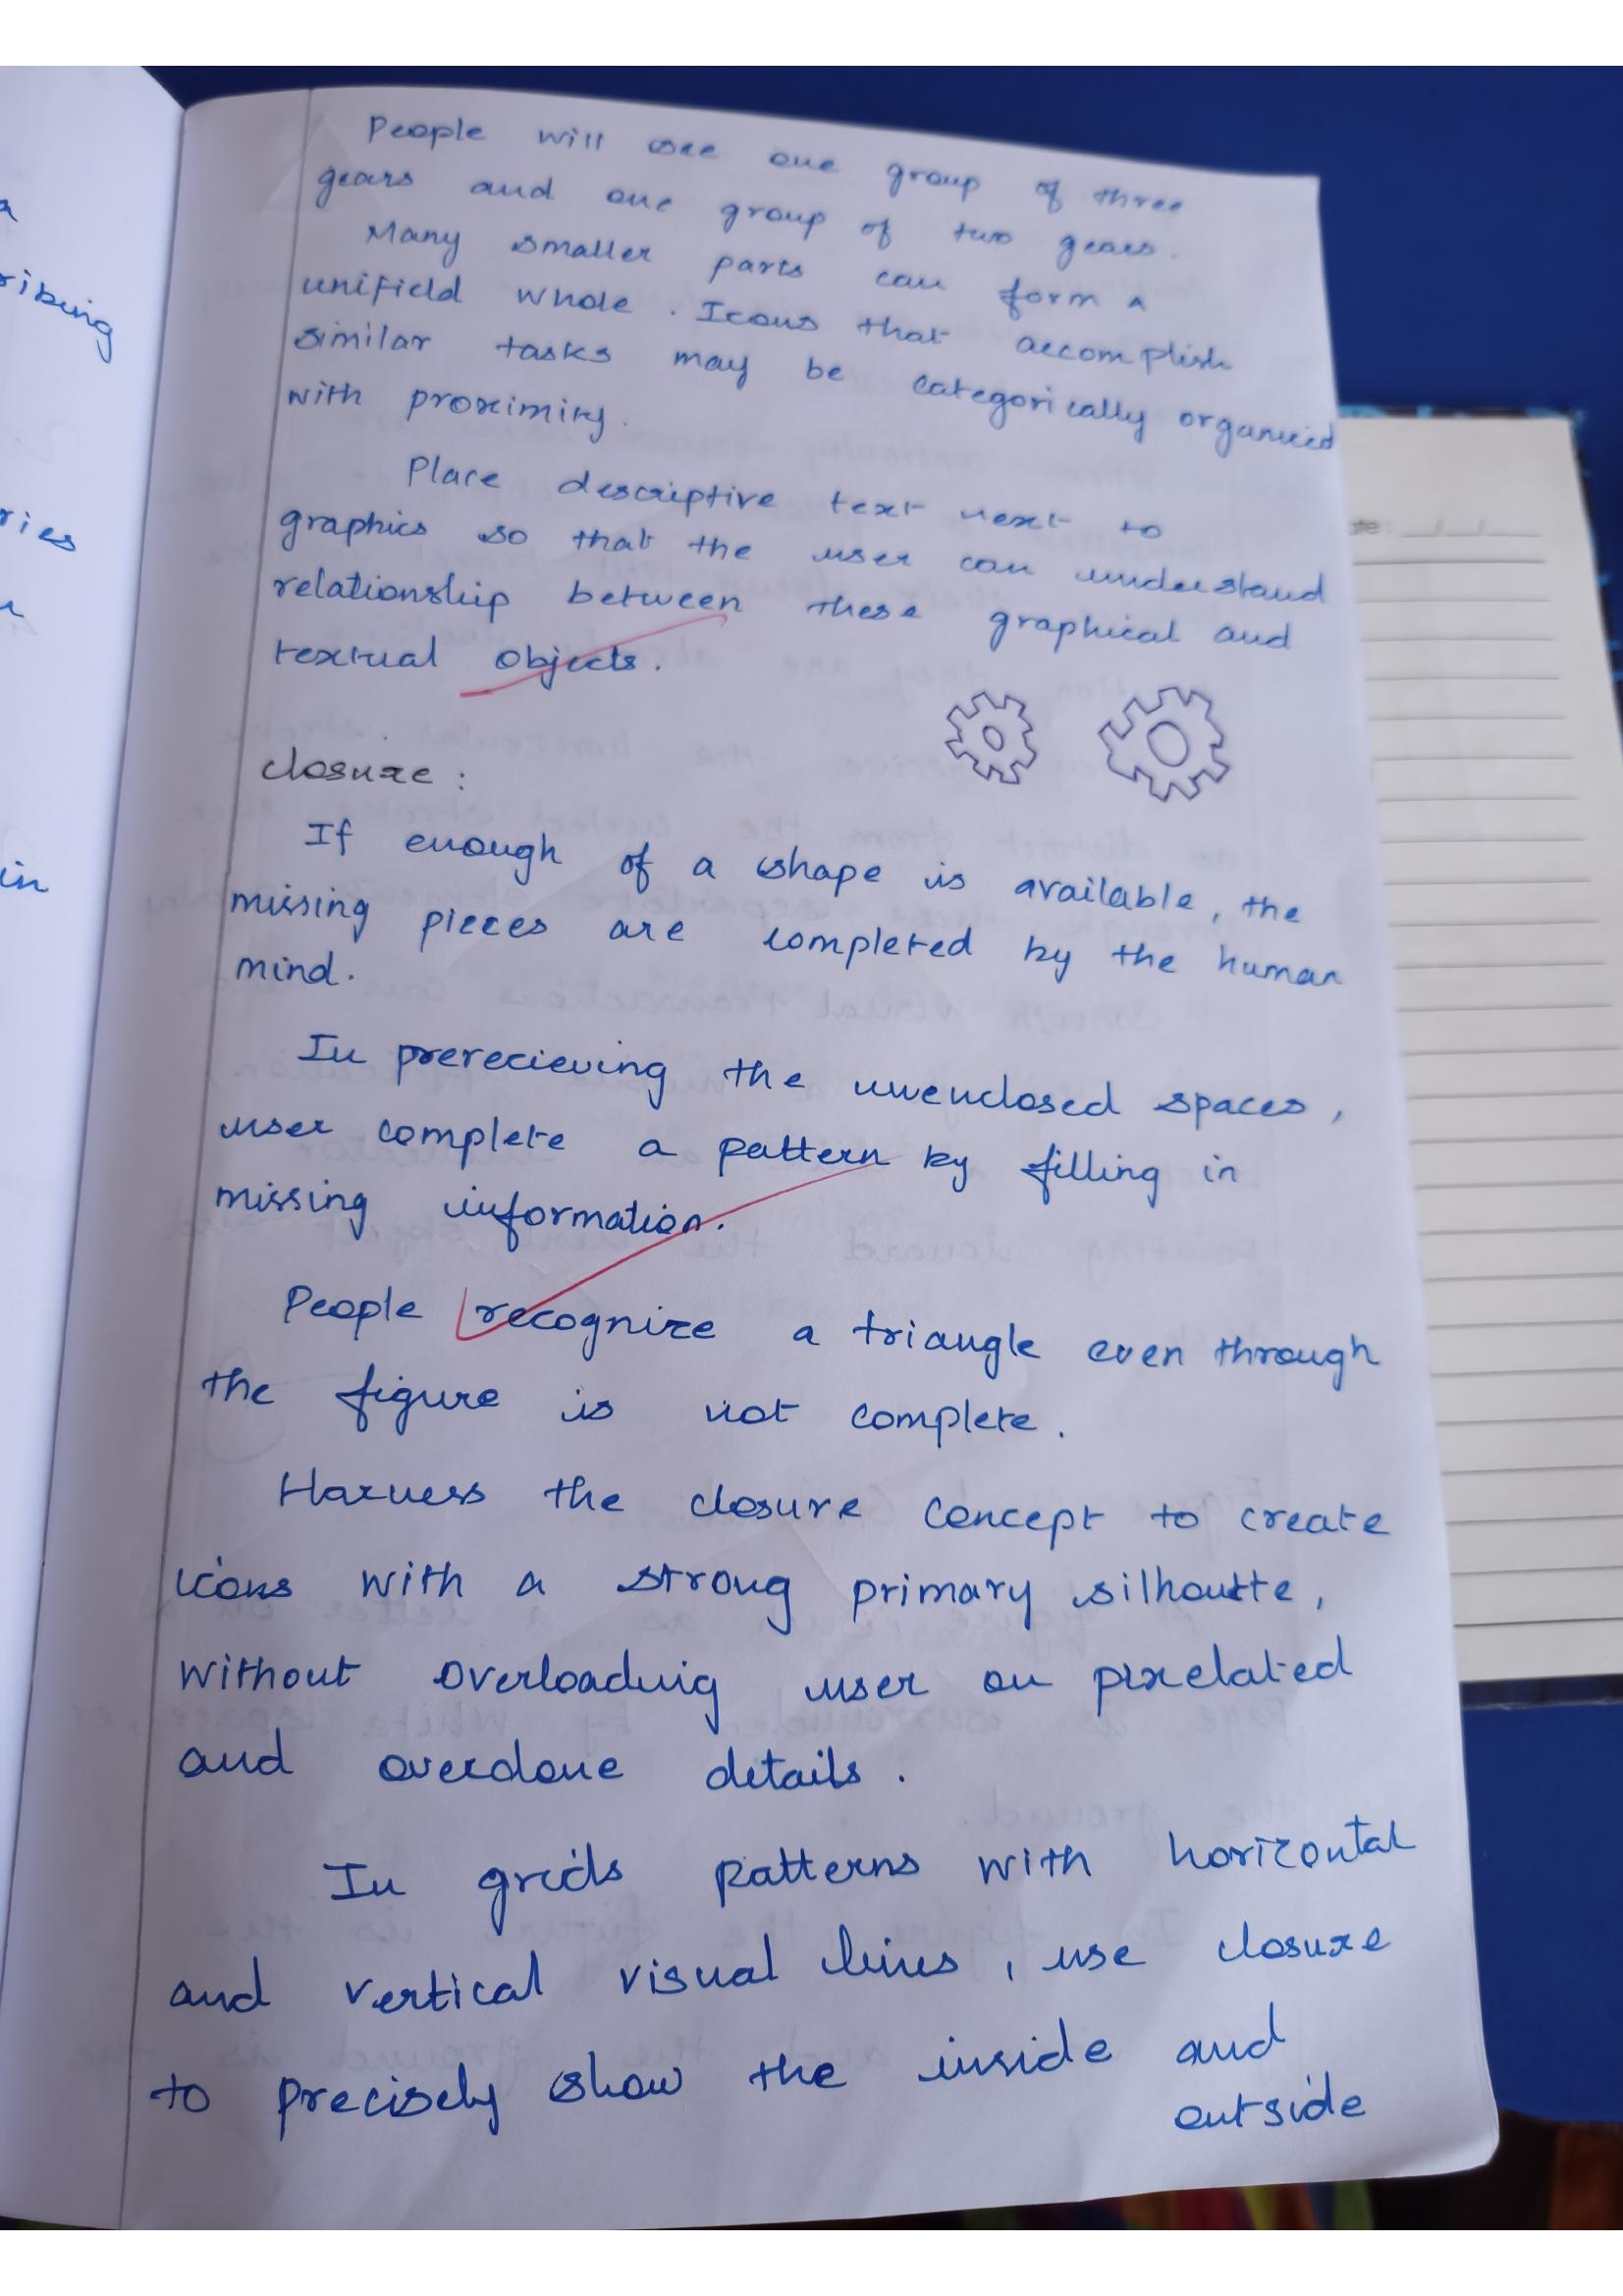 People will see one group of three
gears and one group of two gears.
Many smaller parts can form a
unifield whole. Icons that accomplish
similar tasks may be categorically organized
with proximity.
Place descriptive text next to
graphics so that the user can understand
relationship between these graphical and
textual objects.
closure:
If enough of a shape is available, the
missing pieces are completed by the human
mind.
In prerecieving the unenclosed spaces,
user complete a pattern by filling in
missing information.
People recognize a triangle even through
the figure is not complete.
Harness the closure concept to create
icons with a strong primary silhoutte,
without overloading user on pixelated
and overdone details.
In grids patterns with horizontal
and vertical visual lines, use closure
to precisely show the inside and
outside
ribing
ries
in